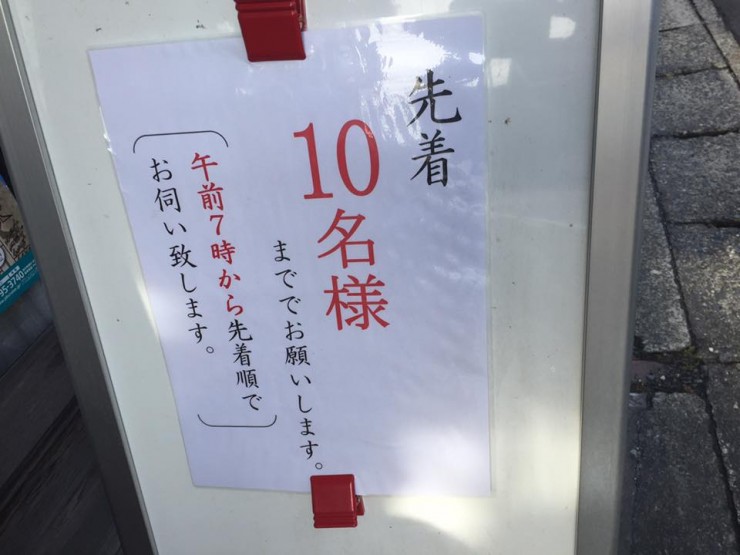 先着
10名様
まででお願いします。
午前7時から先着順で
お伺い致します。
95-3740